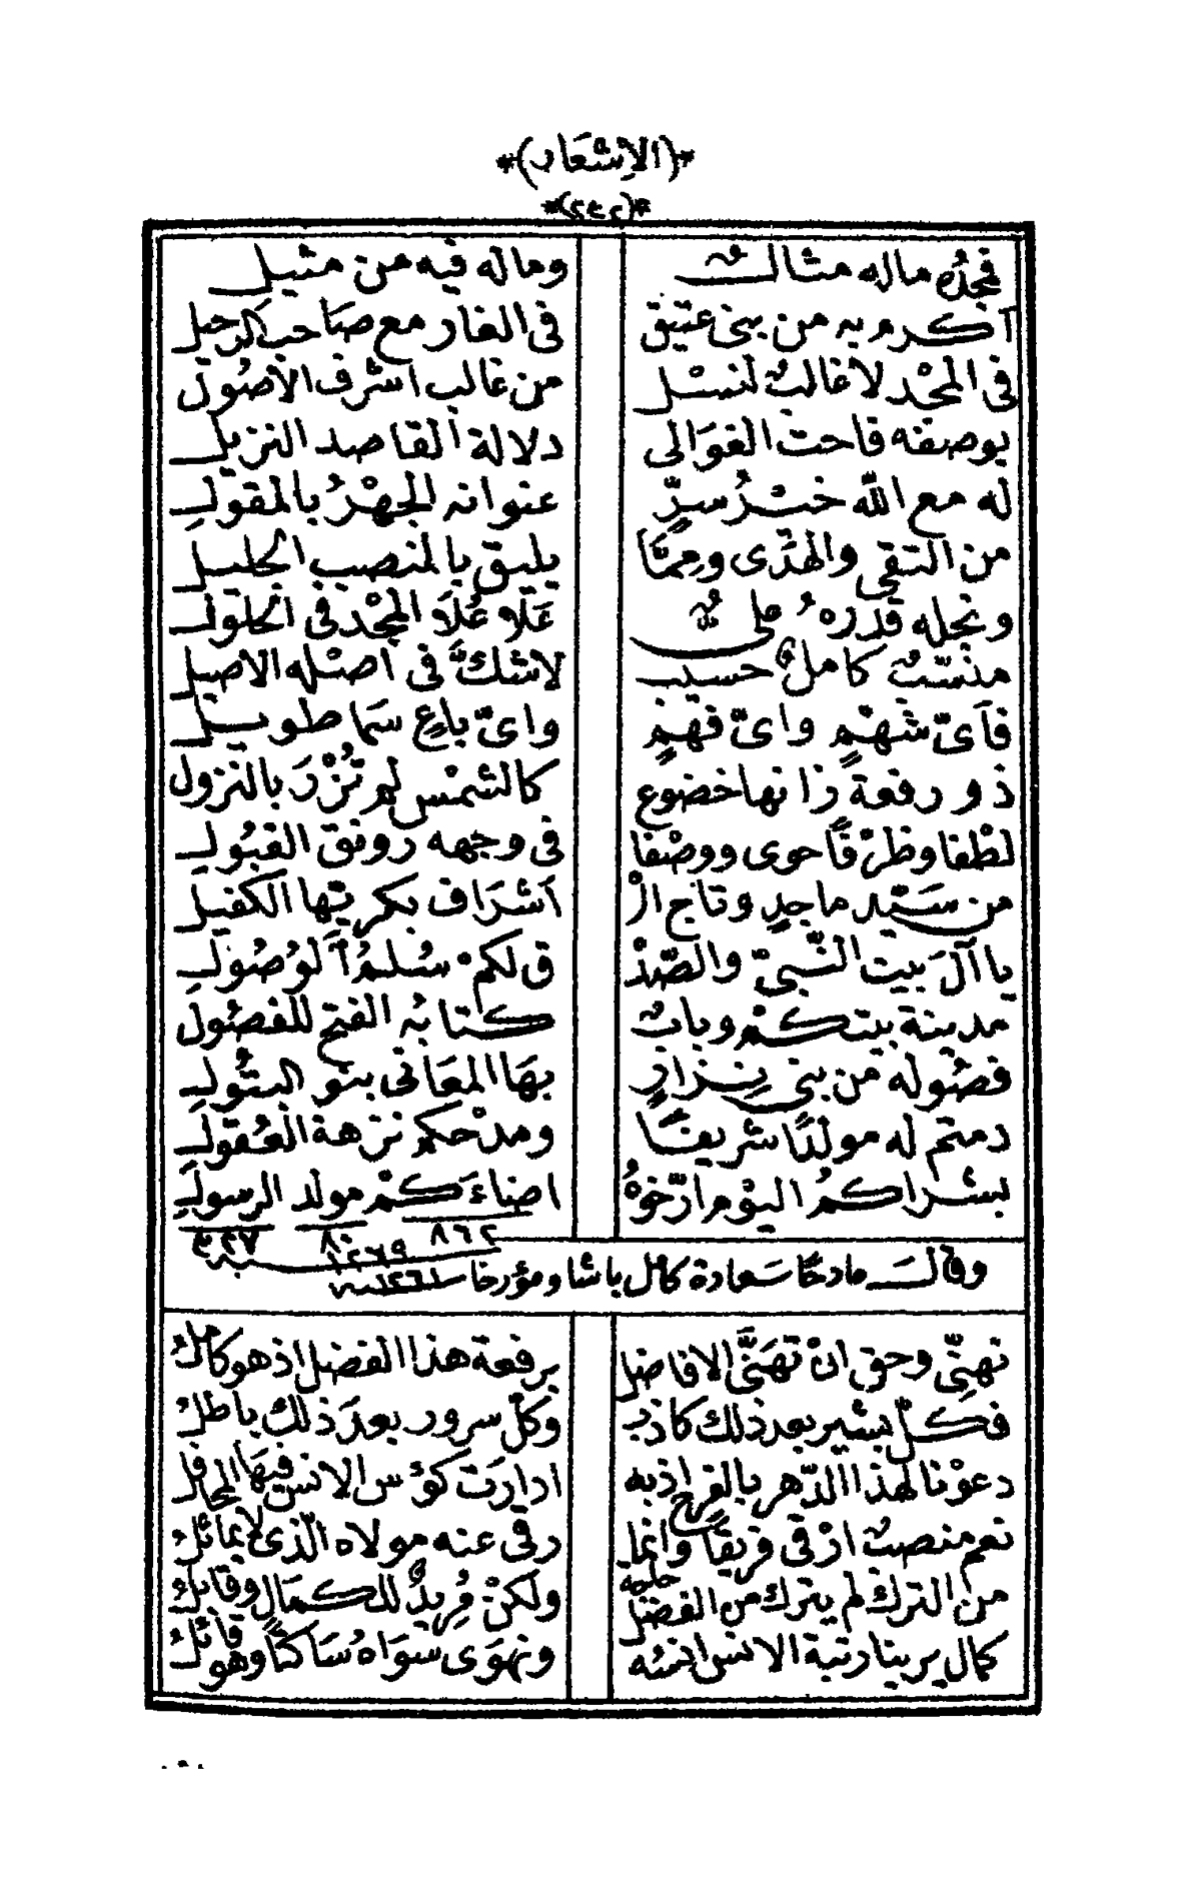 *(الاشعار)*
*(٢٤٢)*
فجدُه ماله مثالٌ وماله فيه من مثيل
أكرم به من بنى عتيق فى الغار مع صَاحب الرحيل
فى المجْد لا غالبٌ لنسْل من غالب اشرف الاصُول
بوصفه فاحت الغوَالى دلالة القاصد النزيل
له مع الله خيْرُ سرٍّ عنوانه الجهْرُ بالمقول
من التقى والهدَى وممَّا يليق بالمنصب الجليل
ونجله قدره علىٌّ عَلا عُلَا المجْد فى الحلول
منسّبٌ كاملٌ حسيب لاشكَّ فى أصْله الاصيل
فأىّ شهْمٍ واىّ فهْمٍ واىّ باعٍ سَما طويل
ذو رفعة زانها خضوع كالشمْس لم تُزْرَ بالنزول
لطْفا وظرْفًا حوى ووصْفا فى وجهه رونق القبُول
من سَيّد ماجدٍ وتاج الْ أشرَاف بكريّها الكفيل
يا آلَ بيت النّبىّ والصّدْ ق لكمْ سُلمُ ألوُصُول
مدينة بيتكمْ وبابٌ كتابُه الفتح للفصُول
فصُوله من بنى نِزارٍ بهَا المعَانى بنُو البتُول
دمتم له مولدًا شريفًا ومدْحكم نزهة العُقول
بسْراكمُ اليوْم ارّخوْهُ اضاءَ كمْ مولد الرسول
٨٦٢ ٨٠ ٣٢٧
١٢٦٩
وقال مادحًا سَعادة كامل باشا ومؤرخا سنة ١٢٦١
نهنّى وحق انْ تهَنَّى الافاضل برفعة هذا الفضل اذ هو كاملُ
فكلّ بشير بعد ذلك كاذب وكلّ سرور بعدَ ذلك باطلُ
دعوْنا لهذا الدّهر بالفرح اذ به ادارَت كؤس الانس فيهَا المحافل
نعم منصبٌ ارْقى فريقًا وانما رقى عنه مولاه الّذى لا يماثلُ
من الترك لم يترك من الفضْل حلمه ولكنْ فرِيدٌ للكمَالِ وقابلُ
كمال يرينا رتبة الانس انسُه ونهوَى سوَاهُ سَاكنًا وهو قائلُ